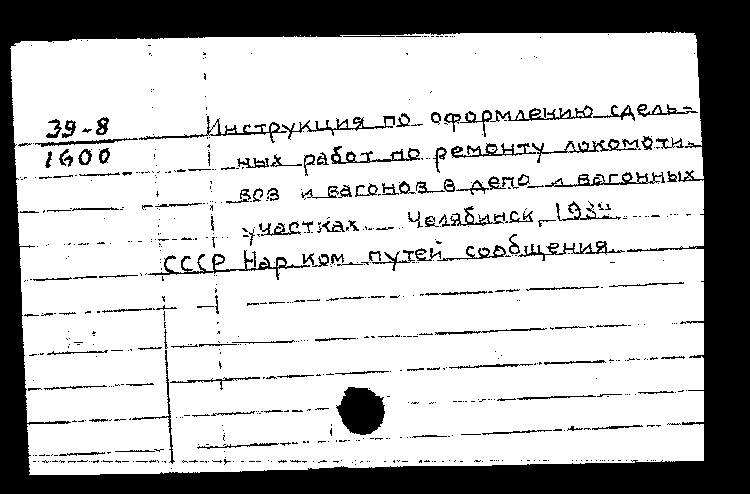 39-8
1600
Инструкция по оформлению сдель-
ных работ по ремонту локомоти-
вов и вагонов в депо и вагонных
участках. Челябинск,
СССР Нар.ком. путей сообщения.